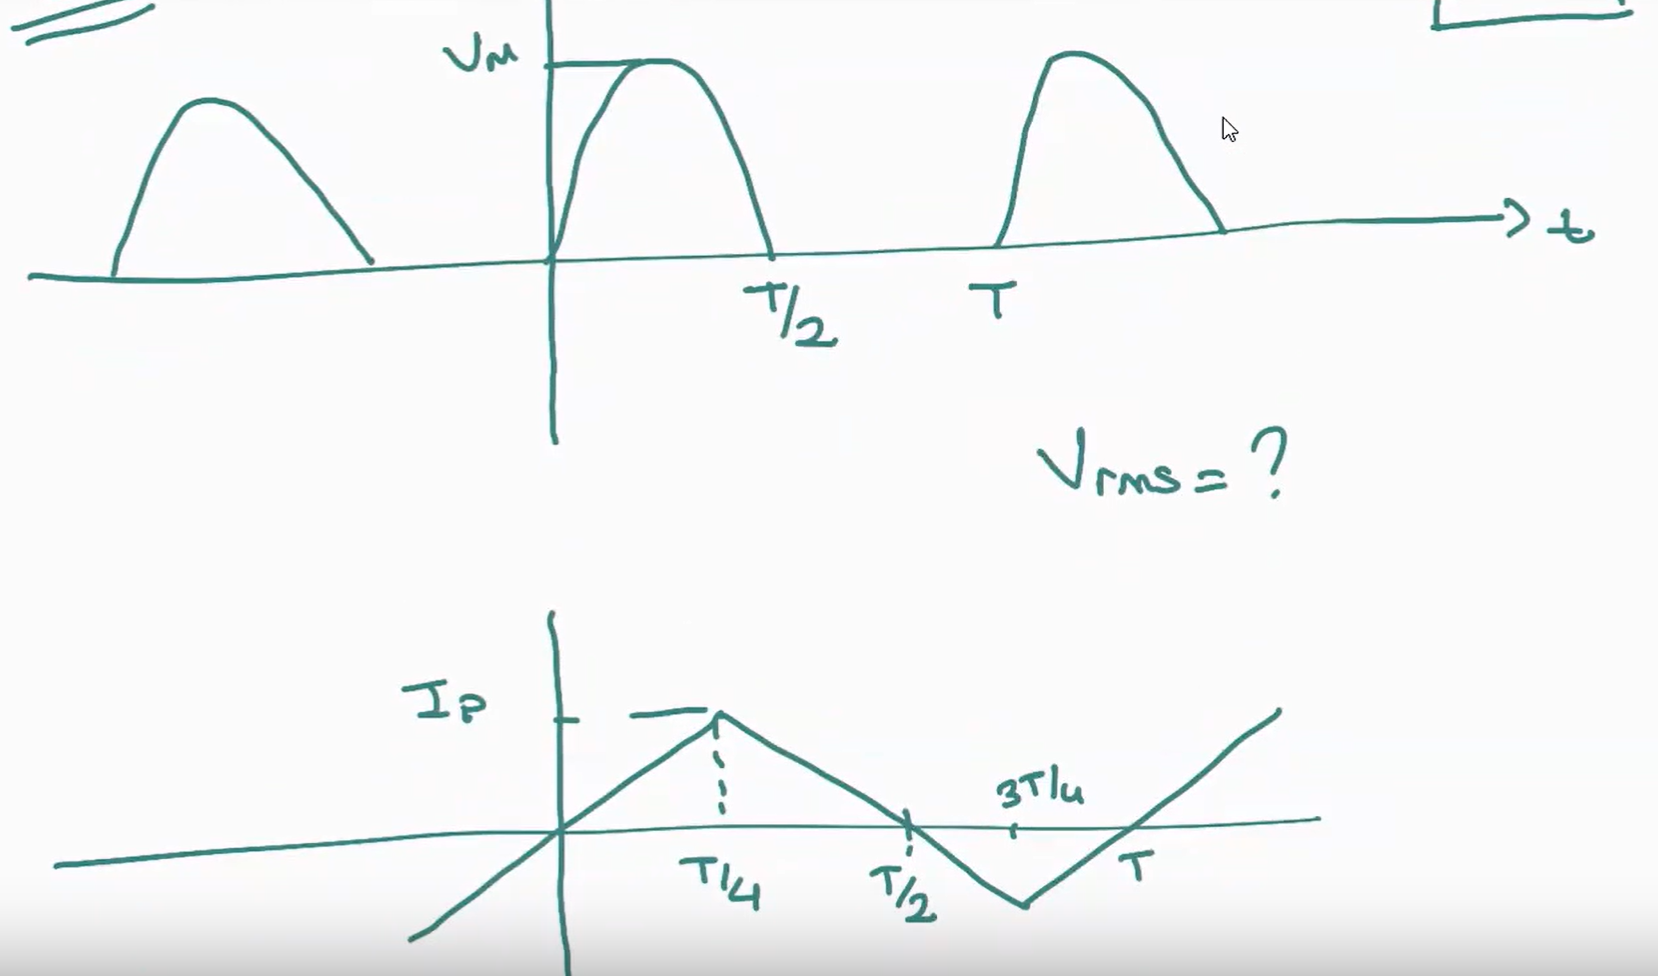 VM
t
T/2
T
Vrms = ?
IP
3T/4
T/4
T/2
T